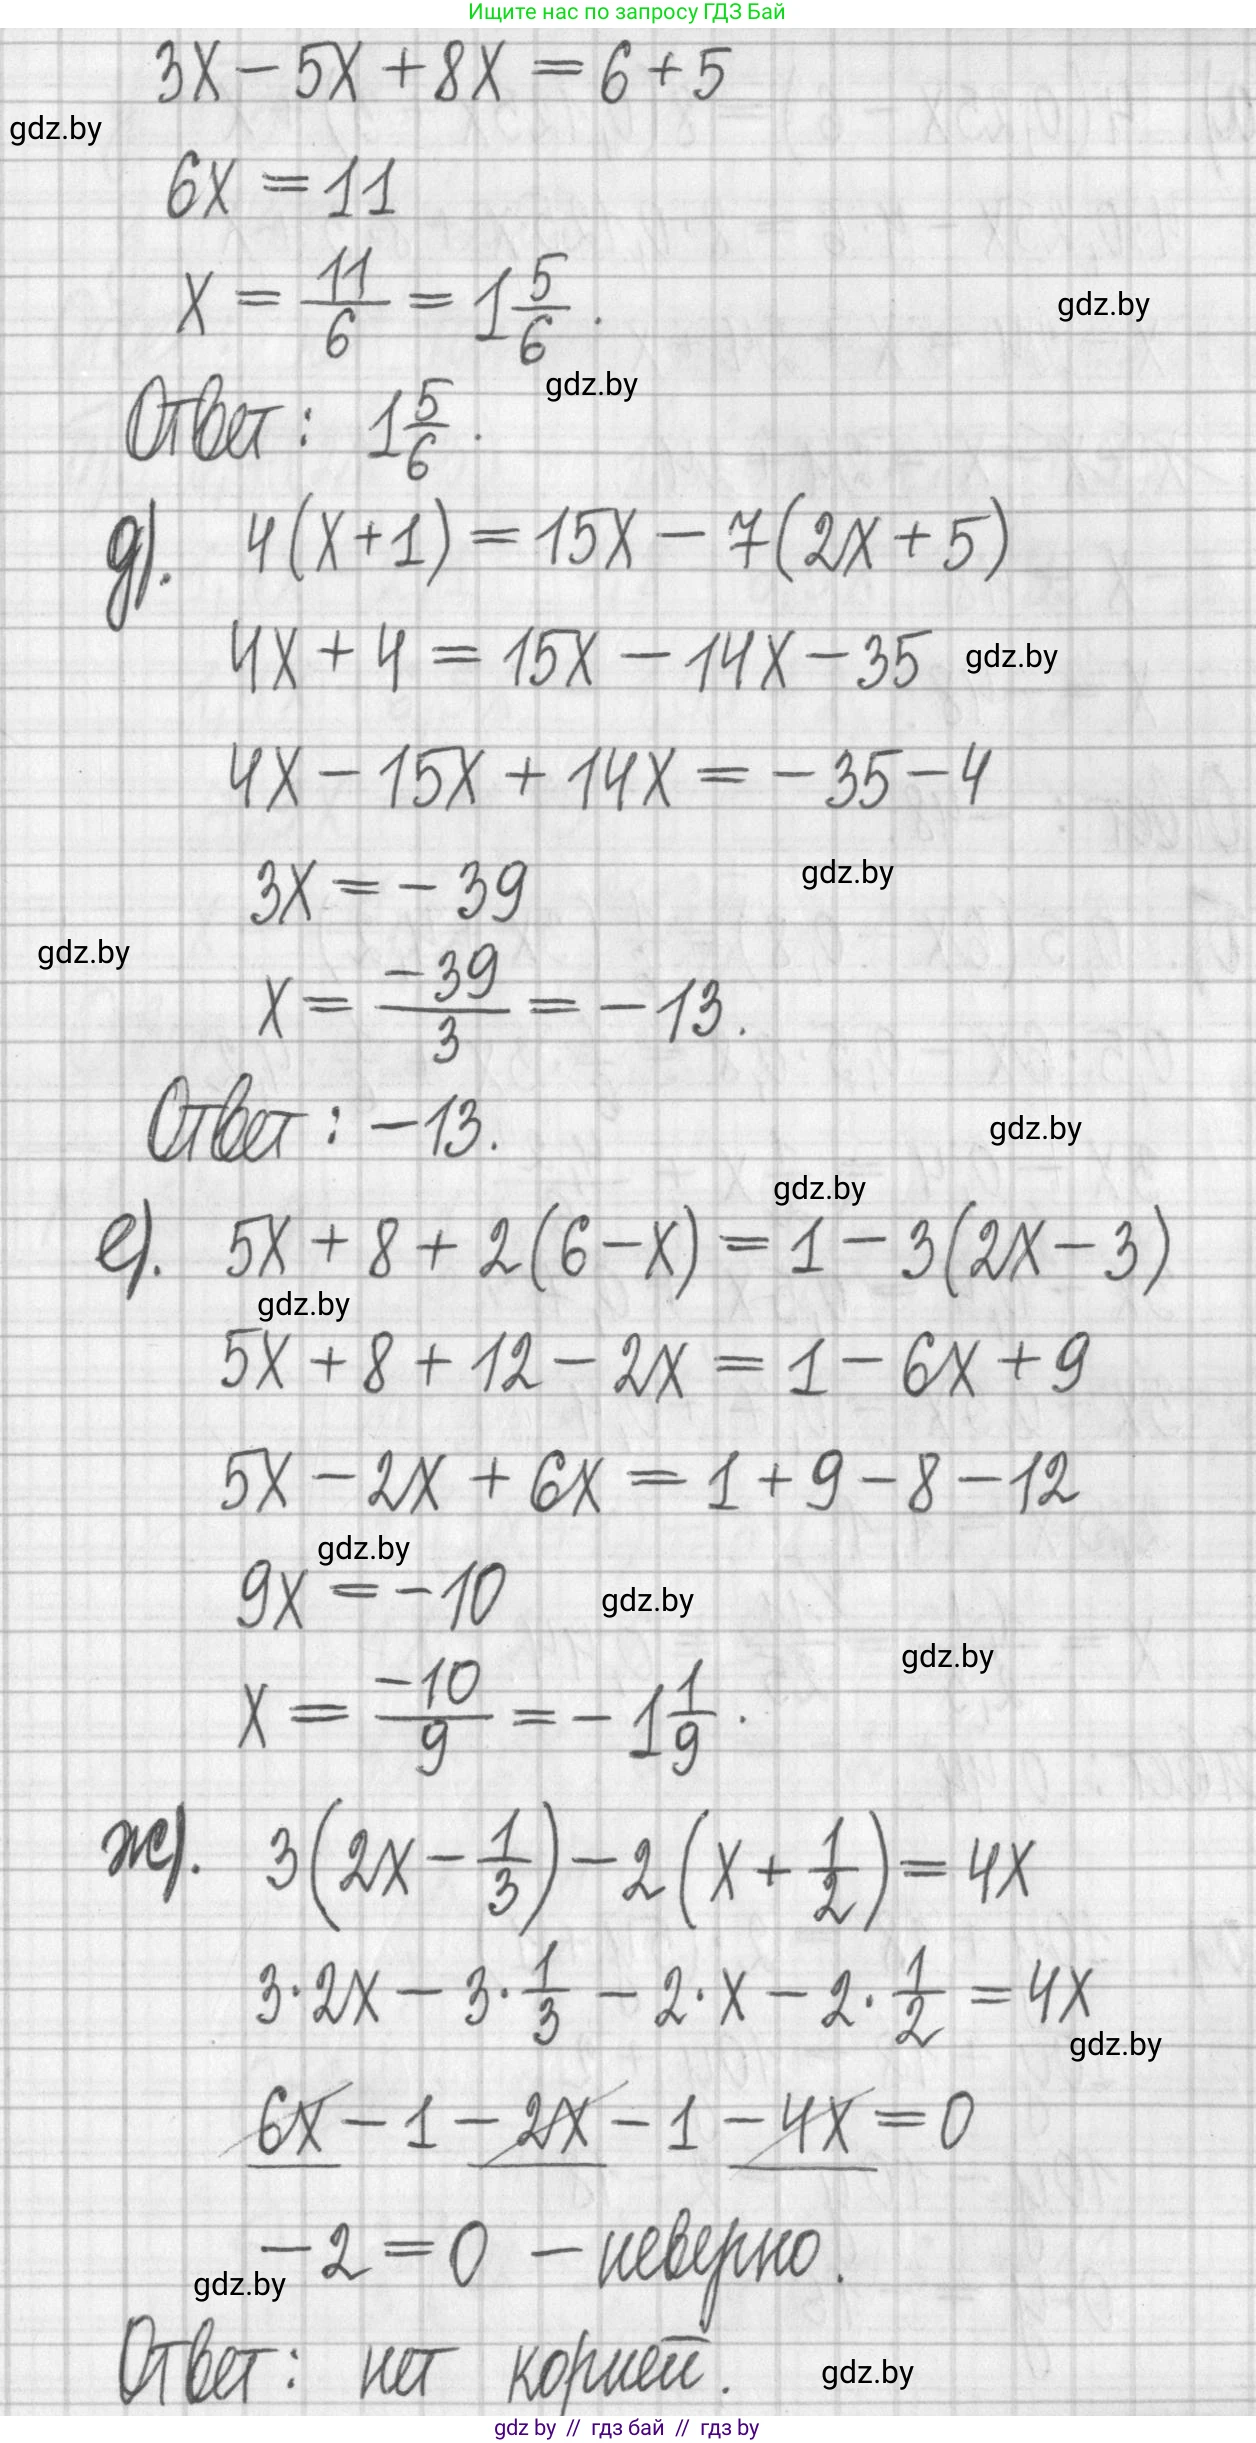 Ищите нас по запросу ГДЗ Бай
3x - 5x + 8x = 6 + 5
gdz.by
6x = 11
x = 11/6 = 1 5/6.
gdz.by
gdz.by
Ответ: 1 5/6.
д). 4(x+1) = 15x - 7(2x+5)
4x + 4 = 15x - 14x - 35
gdz.by
4x - 15x + 14x = -35 - 4
gdz.by
3x = -39
gdz.by
x = -39/3 = -13.
Ответ: -13.
gdz.by
gdz.by
е). 5x + 8 + 2(6-x) = 1 - 3(2x-3)
gdz.by
5x + 8 + 12 - 2x = 1 - 6x + 9
5x - 2x + 6x = 1 + 9 - 8 - 12
gdz.by
9x = -10
gdz.by
gdz.by
x = -10/9 = -1 1/9.
ж). 3(2x - 1/3) - 2(x + 1/2) = 4x
3·2x - 3·1/3 - 2·x - 2·1/2 = 4x
gdz.by
6x - 1 - 2x - 1 - 4x = 0
-2 = 0 - неверно.
gdz.by
Ответ: нет корней.
gdz.by
gdz by // гдз бай // гдз by